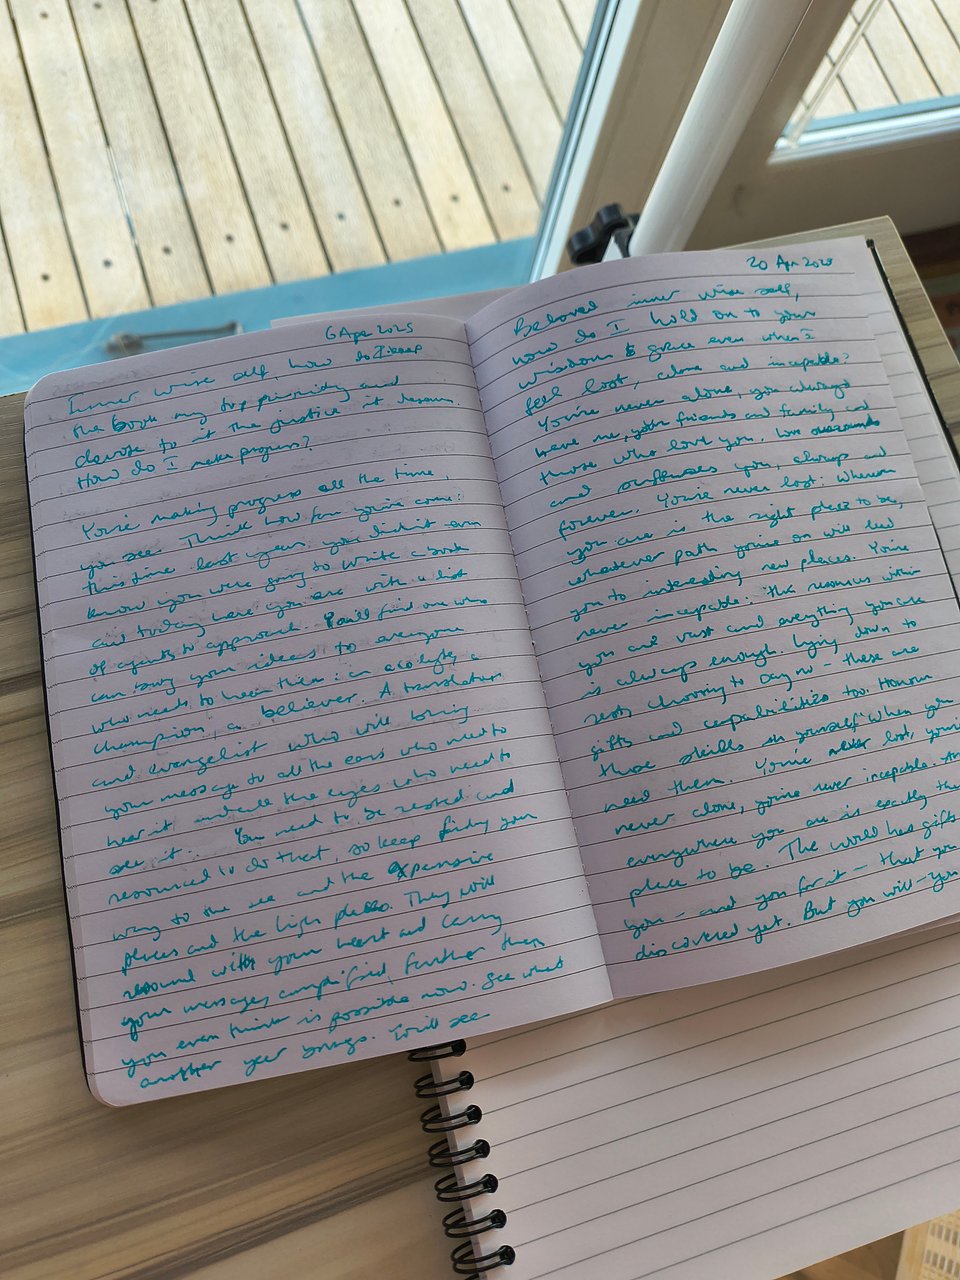 6 Apr 2025
Inner wise self, how do I keep
the book my top priority and
devote to it the justice it deserves.
How do I make progress?
You're making progress all the time,
you see. Think how far you've come:
this time last year, you didn't even
know you were going to write a book
and today here you are with a list
of agents to approach. You'll find one who
can bring your ideas to everyone
who needs to hear them: an acolyte, a
champion, a believer. A translator
and evangelist who will bring
your message to all the ears who need to
hear it and all the eyes who need to
see it. You need to be rested and
resourced to do that, so keep finding you
way to the sea and the expansive
places and the high places. They will
resound with your heart and carry
your message, amplified, further than
you even think is possible now. See what
another year brings. You'll see
20 Apr 2025
Beloved inner wise self,
how do I hold on to your
wisdom & grace even when I
feel lost, alone and incapable?
You're never alone, you always
have me, your friends and family and
those who love you. Love surrounds
and suffuses you, always and
forever. You're never lost: wherever
you are is the right place to be,
whatever path you're on will lead
you to interesting new places. You're
never incapable: the resources within
you are vast and everything you are
is always enough. Lying down to
rest, choosing to say no – these are
gifts and capabilities too. Honour
those skills in yourself when you
need them. You're never lost, you're
never alone, you're never incapable. And
everywhere you are is exactly the
place to be. The world has gifts
you – and you for it – that you
discovered yet. But you will – you